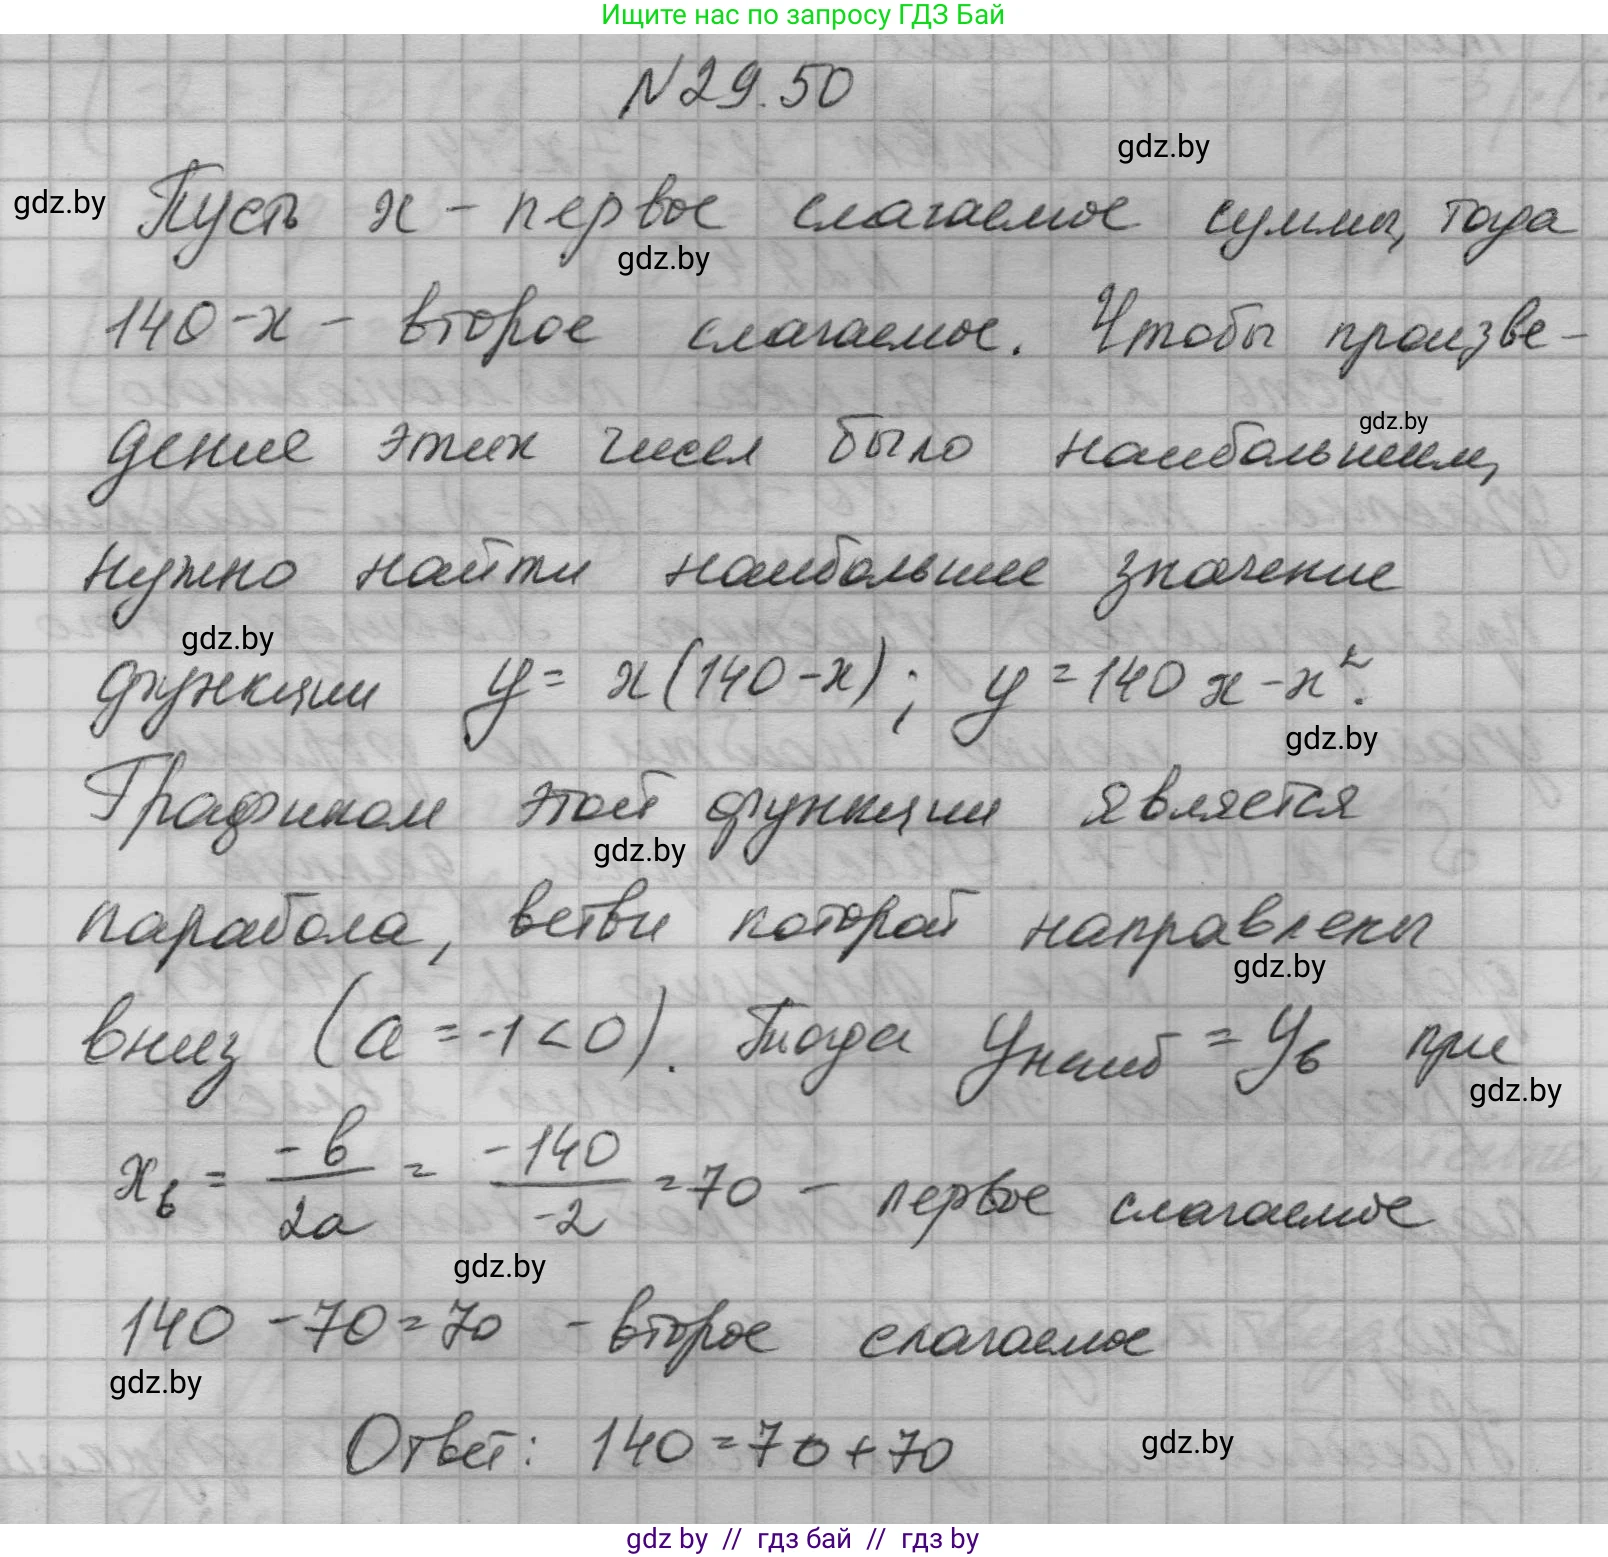 Ищите нас по запросу ГДЗ Бай
№29.50
gdz.by
gdz.by
Пусть x - первое слагаемое суммы, тогда
gdz.by
140-x - второе слагаемое. Чтобы произве-
gdz.by
дение этих чисел было наибольшим,
нужно найти наибольшее значение
gdz.by
функции y = x(140-x); y = 140x - x².
gdz.by
Графиком этой функции является
gdz.by
парабола, ветви которой направлены
gdz.by
вниз (a = -1 < 0). Тогда yнаиб = yв при
gdz.by
xв = -b/2a = -140/-2 = 70 - первое слагаемое
gdz.by
140 - 70 = 70 - второе слагаемое
gdz.by
Ответ: 140 = 70 + 70
gdz.by
gdz by // гдз бай // gdz by